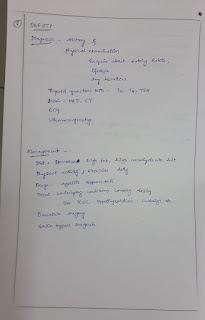 OBESITY
Diagnosis - History &
Physical examination
Enquire about eating habits,
lifestyle
any
Thyroid function tests - T3, T4, TSH
Brain - MRI, CT
ECG
Ultrasonography.
Management -
Diet : high fat, high carbohydrate diet
Physical activity / exercise daily
Drugs - appetite suppressants
Treat underlying conditions causing obesity
like PCOS, Hypothyroidism, etc
Bariatric surgery
Gastric bypass surgeries